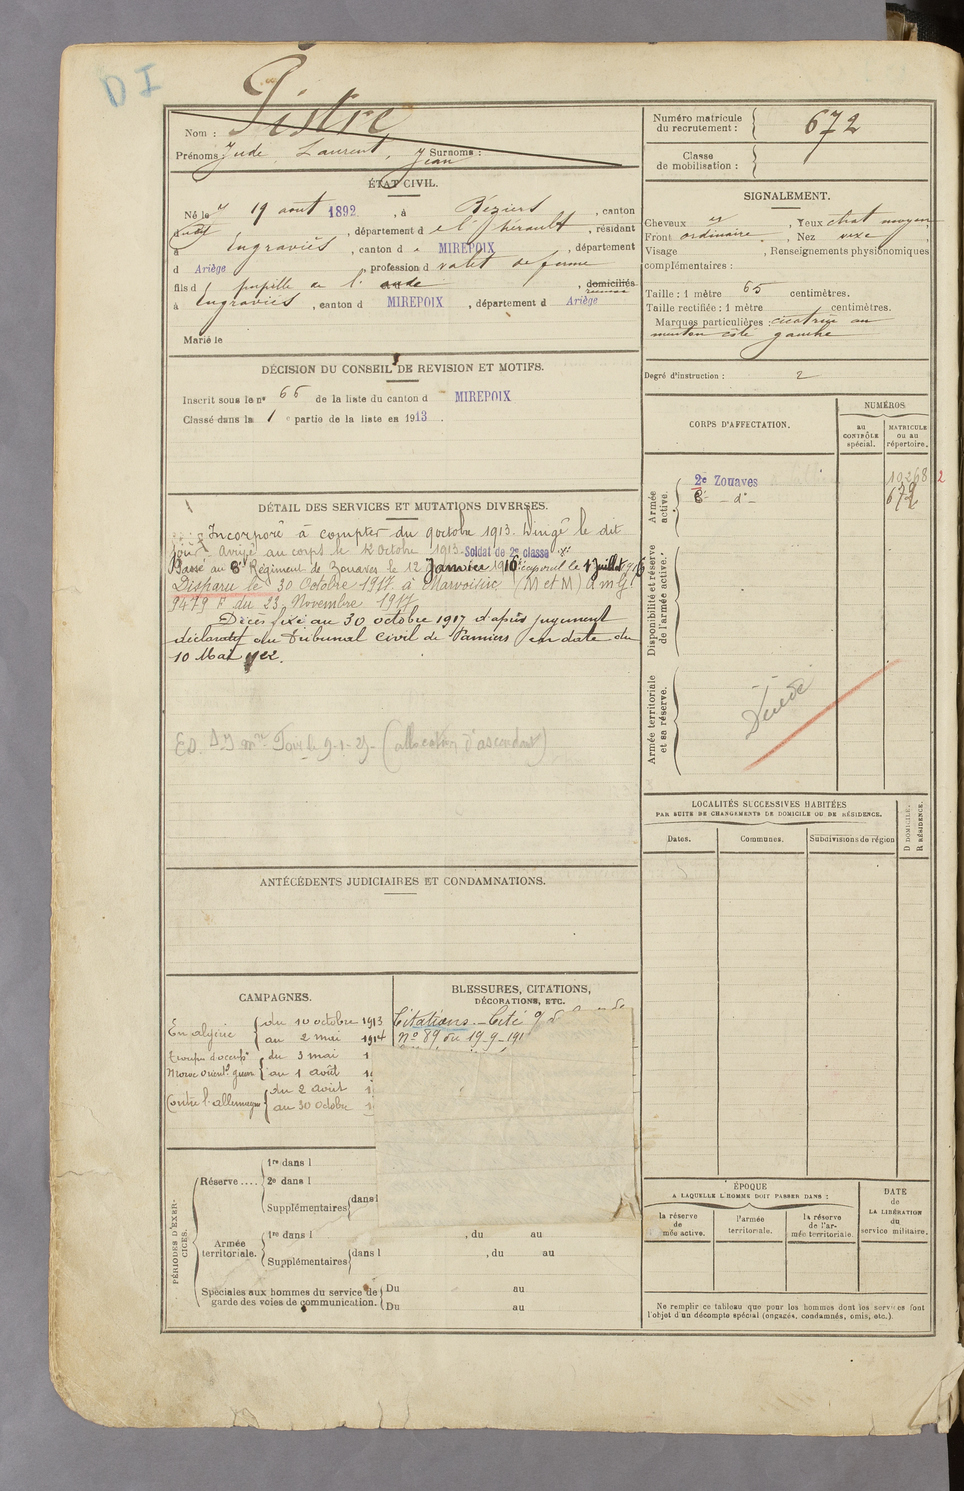 D I
Nom : Pistre
Prénoms : Jude, Laurent, Jean Surnoms :
ÉTAT CIVIL.
Né le 19 août 1892, à Béziers, canton
dudit, département de l'Hérault, résidant
à Engraviès, canton de MIREPOIX, département
d Ariège, profession d valet de ferme
fils d pupille de l'aude, domiciliés
à Engraviès, canton d MIREPOIX, département d Ariège
Marié le
DÉCISION DU CONSEIL DE REVISION ET MOTIFS.
Inscrit sous le n° 66 de la liste du canton d MIREPOIX
Classé dans la 1e partie de la liste en 1913.
DÉTAIL DES SERVICES ET MUTATIONS DIVERSES.
Incorporé à compter du 9 octobre 1913. Dirigé le dit
jour. Arrivé au corps le 12 Octobre 1913. Soldat de 2e classe
Passé au 8e Régiment de Zouaves le 12 Janvier 1916. caporal le 1 Juillet 1916
Disparu le 30 Octobre 1917 à (M et M) a m G
9479 F du 23 Novembre 1917
Décès fixé au 30 octobre 1917 d'après jugement
déclaratif du Tribunal Civil de Pamiers en date du
10 Mai 1922.
(allocation d'ascendant)
ANTÉCÉDENTS JUDICIAIRES ET CONDAMNATIONS.
CAMPAGNES.
En algérie { du 10 octobre 1913
au 2 mai 1914
Troupes d'occupon { du 3 mai 1
Maroc orient. guerre { au 1 août 19
Contre l'allemagne { du 2 août 1
au 30 octobre 1
BLESSURES, CITATIONS,
DÉCORATIONS, ETC.
Citations. — Cité
n° 89 du 19-9-191
PÉRIODES D'EXERCICES.
Réserve .... { 1re dans l
2e dans l
Supplémentaires { dans l
Armée territoriale. { 1re dans l , du au
Supplémentaires { dans l , du au
Spéciales aux hommes du service de
garde des voies de communication. { Du au
Du au
Numéro matricule
du recrutement : } 672
Classe
de mobilisation : }
SIGNALEMENT.
Cheveux , Yeux chat moyen
Front ordinaire, Nez vexe
Visage , Renseignements physionomiques
complémentaires :
Taille : 1 mètre 65 centimètres.
Taille rectifiée : 1 mètre centimètres.
Marques particulières : cicatrice au
menton côté gauche
Degré d'instruction : 2
CORPS D'AFFECTATION.
NUMÉROS
au
CONTRÔLE
spécial.
MATRICULE
ou au
répertoire.
Armée
active.
2e Zouaves 10268 2
8e — d° — 672
Disponibilité et réserve
de l'armée active.
Armée territoriale
et sa réserve.
LOCALITÉS SUCCESSIVES HABITÉES
PAR SUITE DE CHANGEMENTS DE DOMICILE OU DE RÉSIDENCE.
Dates.
Communes.
Subdivisions de région
D DOMICILE.
R RÉSIDENCE.
ÉPOQUE
A LAQUELLE L'HOMME DOIT PASSER DANS :
la réserve
de
mée active.
l'armée
territoriale.
la réserve
de l'ar-
mée territoriale.
DATE
de
LA LIBÉRATION
du
service militaire.
Ne remplir ce tableau que pour les hommes dont les services font
l'objet d'un décompte spécial (engagés, condamnés, omis, etc.).